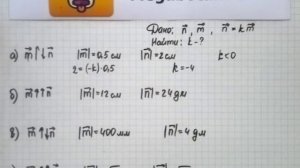 Дано: n⃗, m⃗, n⃗ = k m⃗
Найти: k - ?
а) m⃗ ↑↓ n⃗ |m⃗| = 0,5 см |n⃗| = 2 см k<0
2 = (-k)·0,5 k=-4
б) m⃗ ↑↑ n⃗ |m⃗| = 12 см |n⃗| = 24 дм
в) m⃗ ↑↓ n⃗ |m⃗| = 400 мм |n⃗| = 4 дм